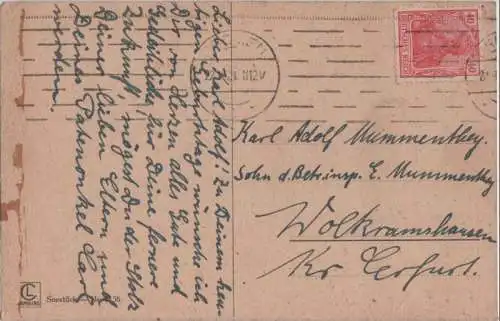 Lieber Karl Adolf! Zu Deinem heu-
tigen Geburtstage wünsche ich
Dir von Herzen alles Gute und
für Deine fernere
Zukunft, mögest Du der Stolz
Deiner lieben Eltern und
Deines Patenonkel Carl
werden.
Karl Adolf Mummenthey.
Sohn d. Betr.insp. E. Mummenthey
Wolkramshausen
Kr. Erfurt.
40
40
DEUTSCHES REICH
12V